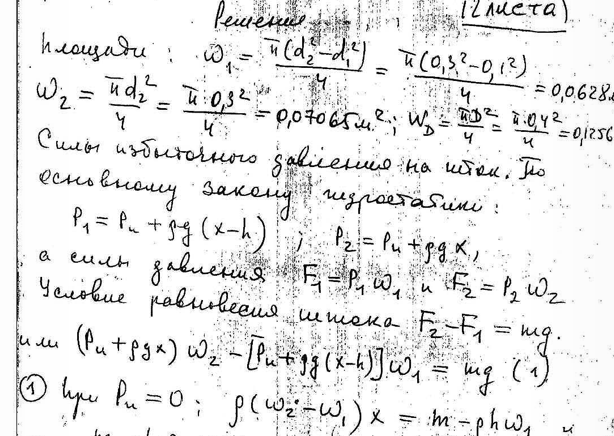 Решение (2 листа)
Площади: ω₁ = π(d₂²-d₁²)/4 = π(0,3²-0,1²)/4 = 0,0628м
ω₂ = πd₂²/4 = π·0,3²/4 = 0,07065м²; ω_D = πD²/4 = π·0,4²/4 = 0,1256
Силы избыточного давления на шток. По
основному закону гидростатики:
P₁ = Pᵤ + ρg(x-h); P₂ = Pᵤ + ρgx,
а силы давления F₁ = P₁ω₁ и F₂ = P₂ω₂
Условие равновесия штока F₂ - F₁ = mg.
или (Pᵤ + ρgx)ω₂ - [Pᵤ + ρg(x-h)]ω₁ = mg (1)
① При Pᵤ = 0; ρ(ω₂ - ω₁)x = m - ρhω₁ и